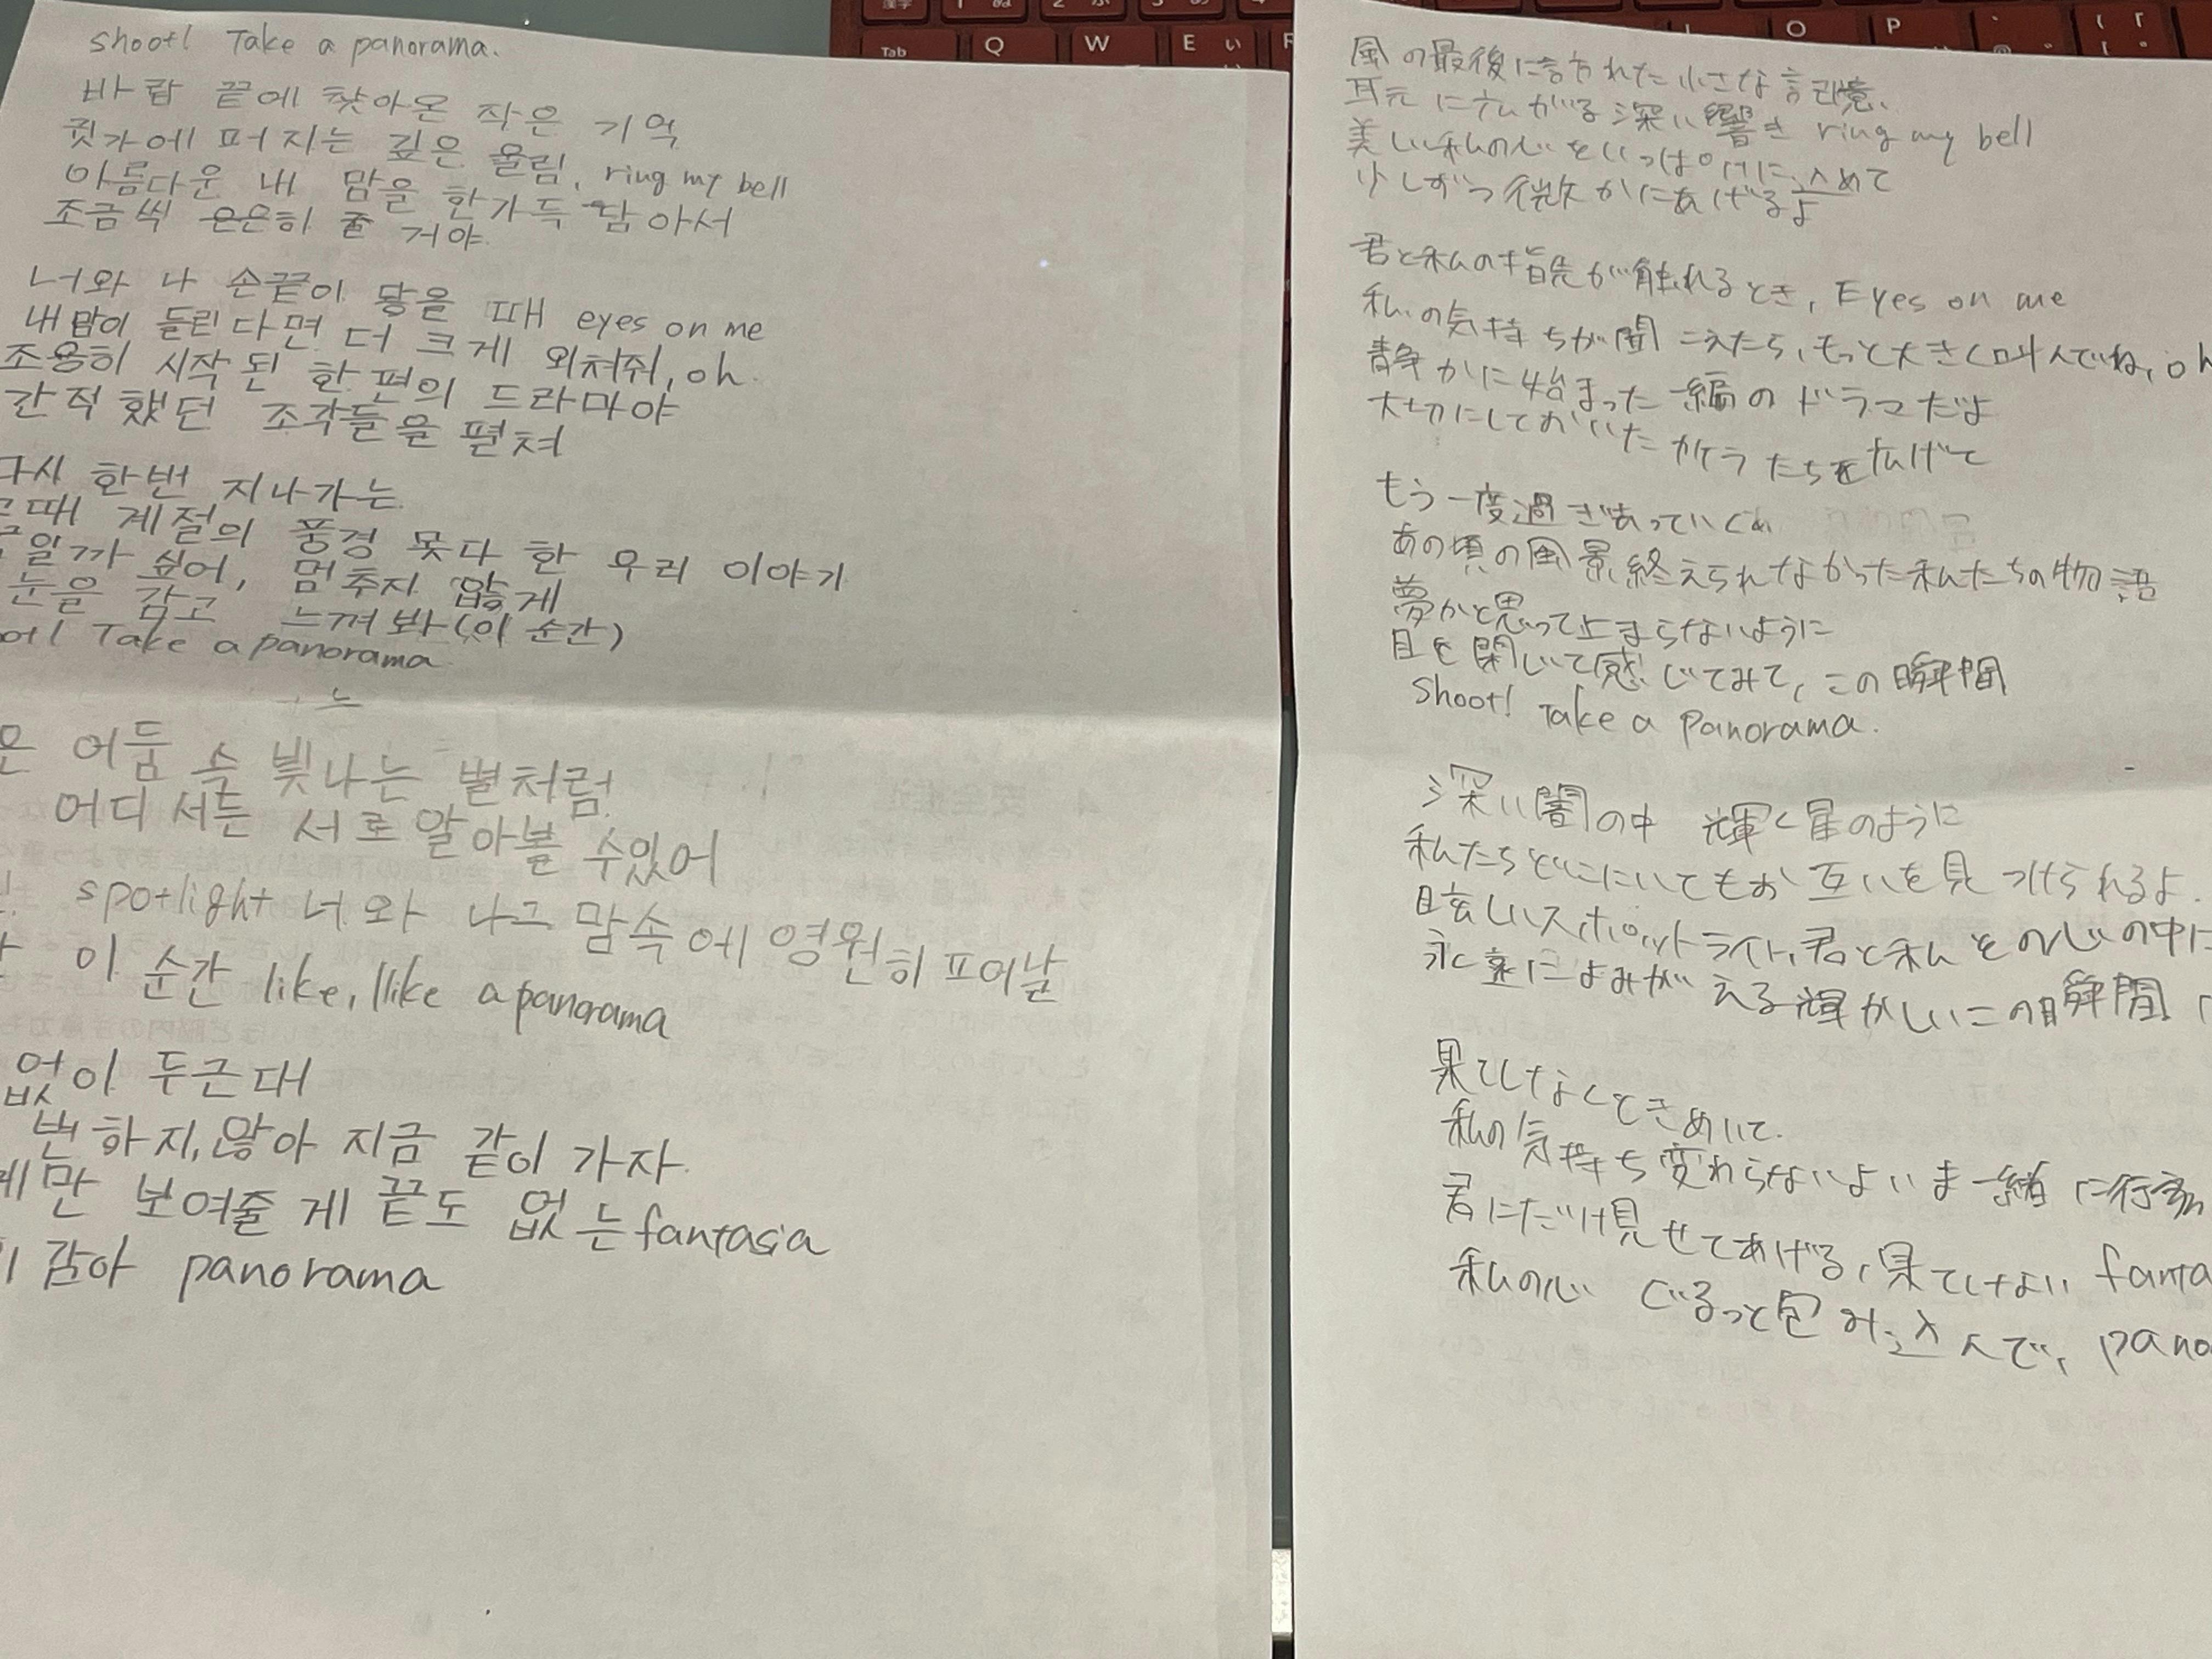 shoot! Take a panorama.
바람 끝에 찾아온 작은 기억
귓가에 퍼지는 깊은 울림, ring my bell
아름다운 내 맘을 한가득 담아서
조금씩 은은히 줄 거야
너와 나 손끝이 닿을 때 eyes on me
내 맘이 들린다면 더 크게 외쳐줘, oh
조용히 시작된 한 편의 드라마야
간직했던 조각들을 펼쳐
다시 한번 지나가는
그때 계절의 풍경 못다 한 우리 이야기
일까 싶어, 멈추지 않게
눈을 감고 느껴봐 (이 순간)
oot! Take a panorama
은 어둠 속 빛나는 별처럼
어디서든 서로 알아볼 수 있어
spotlight 너와 나 그 맘속에 영원히 피어날
이 순간 like, like a panorama
없이 두근대
변하지 않아 지금 같이 가자
게만 보여줄게 끝도 없는 fantasia
감아 panorama
Tab Q W E い
O P
風の最後に訪れた小さな記憶、
耳元に広がる深い響き ring my bell
美しい私の心をいっぱいに込めて
少しずつ微かにあげるよ
君と私の指先が触れるとき, Eyes on me
私の気持ちが聞こえたら、もっと大きく叫んでね, oh
静かに始まった一編のドラマだよ
大切にしておいたカケラたちを広げて
もう一度過ぎさっていく
あの頃の風景終えられなかった私たちの物語
夢かと思って止まらないように
目を閉じて感じてみて, この瞬間
Shoot! Take a panorama.
深い闇の中 輝く星のように
私たちどこにいてもお互いを見つけられるよ.
眩しいスポットライト, 君と私 その心の中に
永遠によみがえる輝かしいこの瞬間
果てしなくときめいて.
私の気持ち変わらないよいま一緒に行こう
君にだけ見せてあげる, 果てしない fanta
私の心 ぐるっと包み込んで, pano